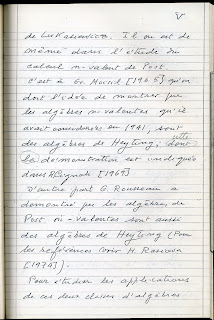 V
de Łukasiewicz. Il en est de
même dans l'étude du
calcul n-valent de Post
c'est à Gr. Moisil [1965] qu'on
doit l'idée de montrer que
les algèbres n-valentes qu'il
avait considérées en 1941, sont
des algèbres de Heyting; dont cette
la démonstration est indiquée
dans [1969]
D'autre part G. Rousseau a
démontré que les algèbres de
Post n-valentes sont aussi
des algèbres de Heyting (Pour
les références voir H. Rasiowa
[1974]).
Pour étudier les applications
de ces deux classes d'algèbres